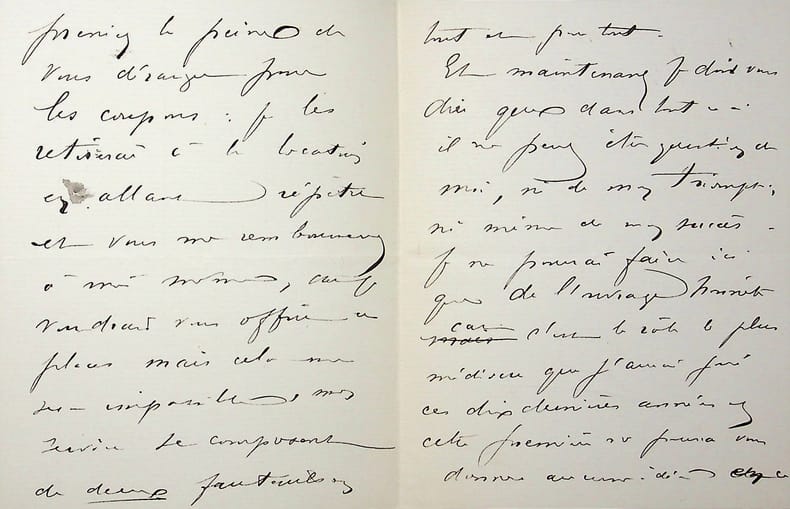 prenez la peine de
vous déranger pour
les coupons : je les
retirerai à la location
en allant répéter
et vous me rembourserez
à moi même, car je
voudrais vous offrir ces
places mais cela me
sera impossible, mon
service se composant
de deux fauteuils en
tout et pour tout.
Et maintenant je dois vous
dire que dans tout
il ne peut être question de
moi, ni de mon triomphe,
ni même de mon succès.
Je ne pourrai faire ici
que de l'ouvrage honnête
car c'est le rôle le plus
médiocre que j'aurai joué
ces dix dernières années et
cette première ne pourra vous
donner aucune idée